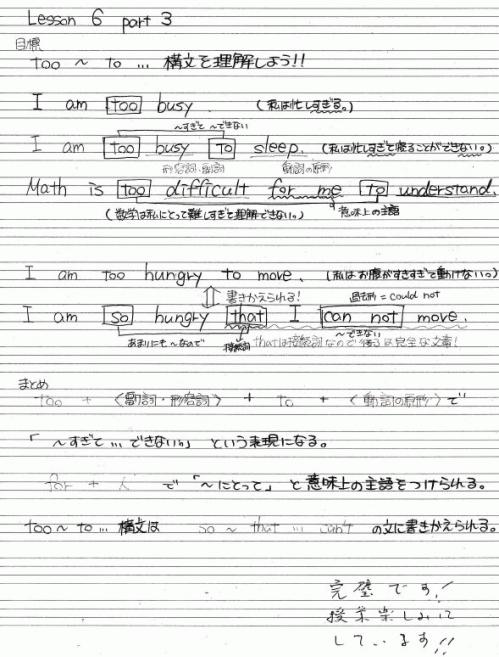 Lesson 6 part 3
目標
too ~ to ... 構文を理解しよう!!
I am too busy. (私は忙しすぎる。)
~すぎて ~できない
I am too busy to sleep. (私は忙しすぎて寝ることができない。)
形容詞、副詞 動詞の原形
Math is too difficult for me to understand.
(数学は私にとって難しすぎて理解できない。) 意味上の主語
I am too hungry to move. (私はお腹がすきすぎて動けない。)
書きかえられる! 過去形 = could not
I am so hungry that I can not move.
あまりにも~なので 接続詞 ~できない
thatは接続詞なので後ろは完全な文章!
まとめ
too + (副詞・形容詞) + to + (動詞の原形) で
「~すぎて...できない。」という表現になる。
for + 人 で「~にとって」と意味上の主語をつけられる。
too ~ to ... 構文は so ~ that ... can't の文に書きかえられる。
完璧です!
授業楽しみに
しています!!